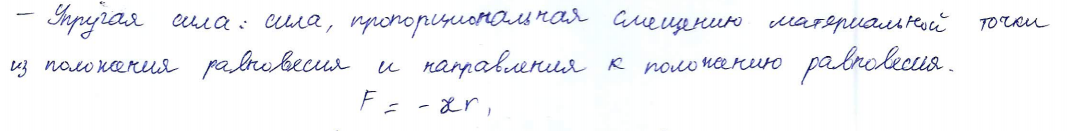 - Упругая сила: сила, пропорциональная смещению материальной точки
из положения равновесия и направления к положению равновесия.
F = - ær,